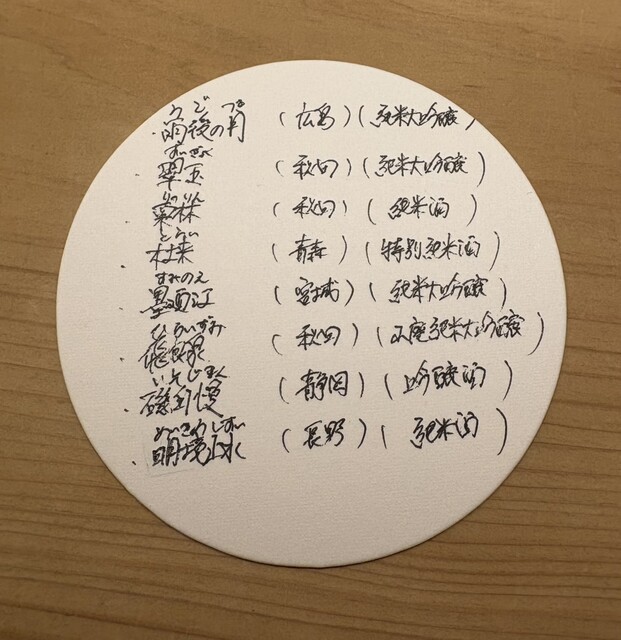 うご つき
・雨後の月 (広島)(純米大吟醸)
すいぎょく
・翠玉 (秋田)(純米大吟醸)
りんりん
(秋田)(純米酒)
・杜來 (青森)(特別純米酒)
すみのえ
・墨廼江 (宮城)(純米大吟醸)
ひらいずみ
・飛良泉 (秋田)(山廃純米大吟醸)
いそじまん
・磯自慢 (静岡)(吟醸酒)
めいきょうしすい
・明境止水 (長野)(純米酒)